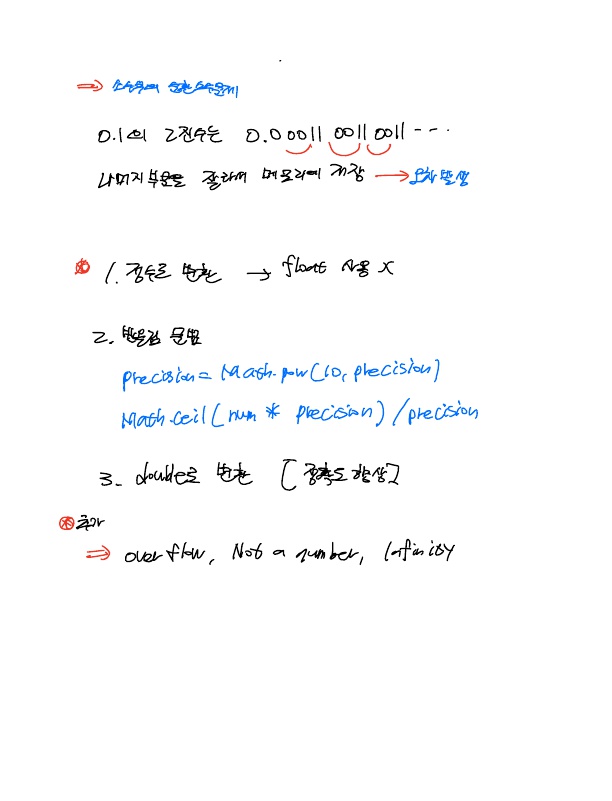 ⇒ 소수부의 순환소수문제
0.1의 2진수는 0.0 0011 0011 0011 ---.
나머지부분을 잘라서 메모리에 저장 → 오차 발생
1. 정수로 변환 → float 사용 X
2. 반올림 문법
precision = Math.pow(10, precision)
Math.ceil(num * precision) / precision
3. double로 변환 [정확도 향상]
추가
⇒ overflow, Not a number, Infinity